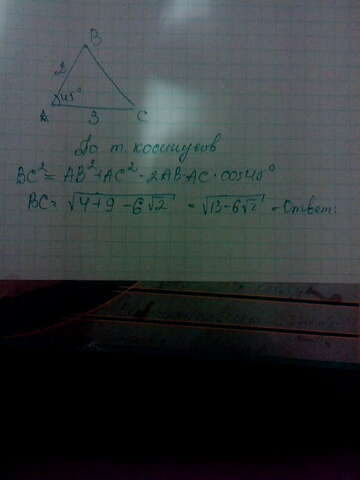 B
2
45°
A
3
C
По т. косинусов
BC² = AB² + AC² - 2AB·AC·cos45°
BC = √4+9-6√2 = √13-6√2 - Ответ.